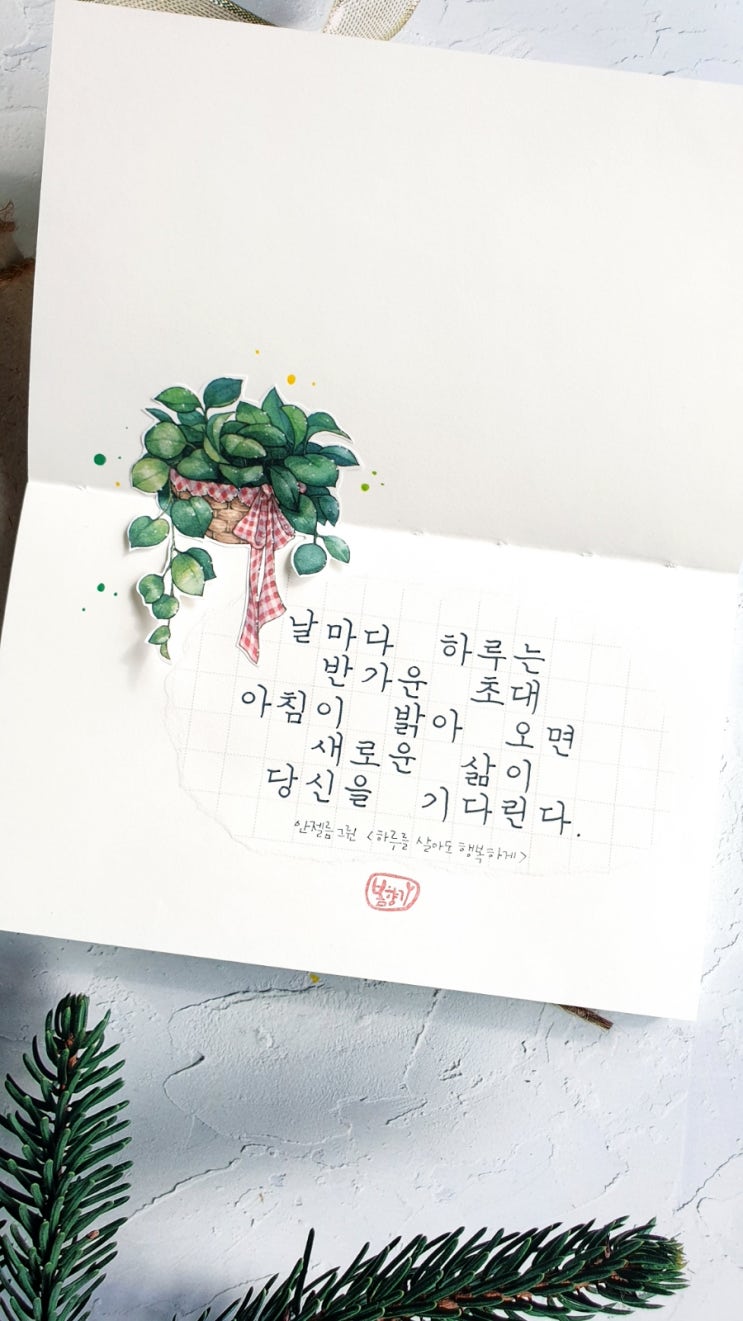 날마다 하루는
반가운 초대
아침이 밝아 오면
새로운 삶이
당신을 기다린다.
안젤름그륀 <하루를 살아도 행복하게>
봄향기